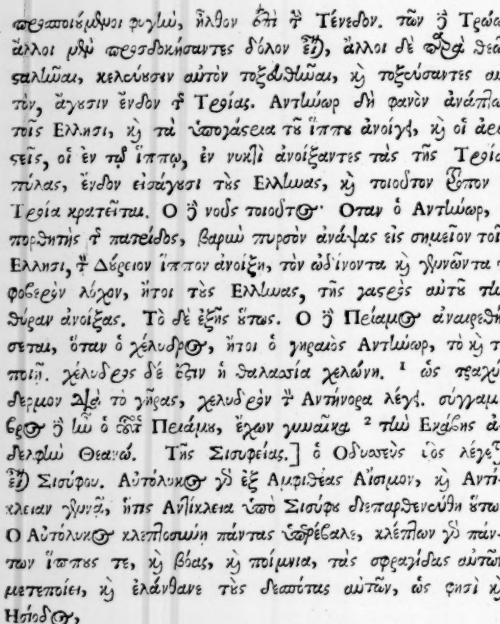 προσποιούμενοι φυγὼ, ἦλθον ἐπὶ τ̃ Τένεδον. τῶν ἢ Τρώω
ἄλλοι μὲν προσδοκήσαντες δόλον εἶ), ἄλλοι δὲ παρὰ θεῶ
σαλῶαι, κελούουσιν αὐτὸν τοξευθῶαι, κ̀ τοξεύσαντες αυ
τὸν, ἄγουσιν ἔνδον τ̃ Τροίας. Αντιώωρ δὴ φανὸν ἀνάπτω
τοῖς Ελλησι, κ̀ τὰ ὑπογάστρια τοῦ ἵππου ἀνοίγει, κ̀ οἱ ἀρι
στεῖς, οἱ ἐν τῷ ἵππῳ, ἐν νυκτὶ ἀνοίξαντες τὰς τῆς Τροία
πύλας, ἔνδον εἰσάγουσι τοὺς Ελλωας, κ̀ τοιοῦτον τρόπον
Τροία κρατεῖται. Ο ἢ νοῦς τοιοῦτος· Οταν ὁ Αντιώωρ,
πορθητὴς τ̃ πατρίδος, βαρὼ πυρσὸν ἀνάψας εἰς σημεῖον τοῖ
Ελλησι, τ̃ Δύρειον ἵππον ἀνοίξῃ, τὸν ὠδίνοντα κ̀ γεννῶντα
φοβερὸν λόχον, ἤτοι τοὺς Ελλωας, τῆς γαστρὸς αὐτοῦ τω
θύραν ἀνοίξας. Τὸ δὲ ἑξῆς οὕτως. Ο ἢ Πρίαμος ἀναιρεθή
σεται, ὅταν ὁ χέλυδρος, ἤτοι ὁ γηραιὸς Αντιώωρ, τὸ κ̀ τ
ποιῇ. χέλυδρος δέ ἐστιν ἡ θαλασσία χελώνη. ¹ ὡς τραχύ
δερμον διὰ τὸ γῆρας, χέλυδρον τ̃ Αντήνορα λέγει. σύγγαμ
βρος ἢ ὦ ὁ τοῦ Πριάμου, ἔχων γυναῖκα ² τὼ Εκάβης ἀ
δελφὼ Θεανώ. Τῆς Σισυφείας.] ὁ Οδυσσεὺς υἱὸς λέγε)
εἶ) Σισύφου. Αὐτόλυκος γὸ ἐξ Αμφιθέας Αἴσιμον, κ̀ Αντί
κλειαν γεννᾷ, ἥτις Αντίκλεια ὑπὸ Σισύφου διεπαρθενεύθη οὕτω
Ο Αὐτόλυκος κλεπτοσύνῃ πάντας ὑπερέβαλε, κλέπτων γὸ πάν
των ἵππους τε, κ̀ βόας, κ̀ ποίμνια, τὰς σφραγῖδας αὐτῶν
μετεποίει, κ̀ ἐλάνθανε τοὺς δεσπότας αὐτῶν, ὡς φησὶ κ̀
Ησίοδος,